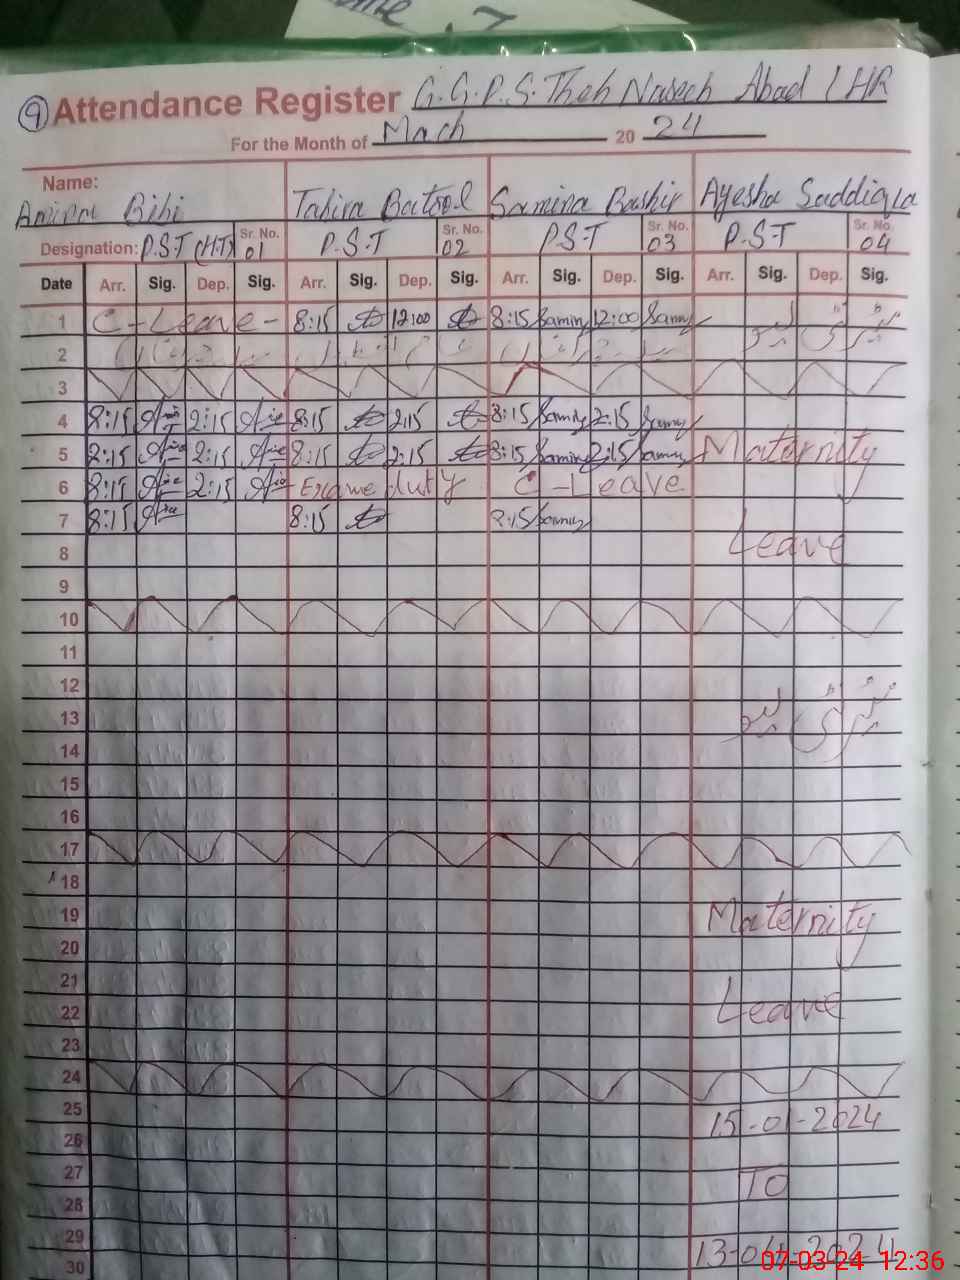 9 Attendance Register G.G.P.S. Theh Naseeh Abad LHR
For the Month of Mach 20 24
Name: Amina Bibi Tahira Batool Samina Bashir Ayesha Saddiqla
Designation: P.S.T (H.T) Sr. No. 01 P.S.T Sr. No. 02 P.S.T Sr. No. 03 P.S.T Sr. No. 04
Date Arr. Sig. Dep. Sig. Arr. Sig. Dep. Sig. Arr. Sig. Dep. Sig. Arr. Sig. Dep. Sig.
1 C - Leave - 8:15 12:00 8:15 Saminy 12:00 Saminy
2
3
4 8:15 2:15 8:15 2:15 8:15 Saminy 2:15 Saminy
5 2:15 2:15 8:15 2:15 8:15 Saminy 2:15 Saminy Maternity
6 8:15 2:15 Exame duty C - Leave
7 8:15 8:15 8:15 Saminy
8 Leave
9
10
11
12
13
14
15
16
17
18
19 Maternity
20
21
22 Leave
23
24
25 15-01-2024
26
27 TO
28
29 13-04-2024
30
07-03-24 12:36